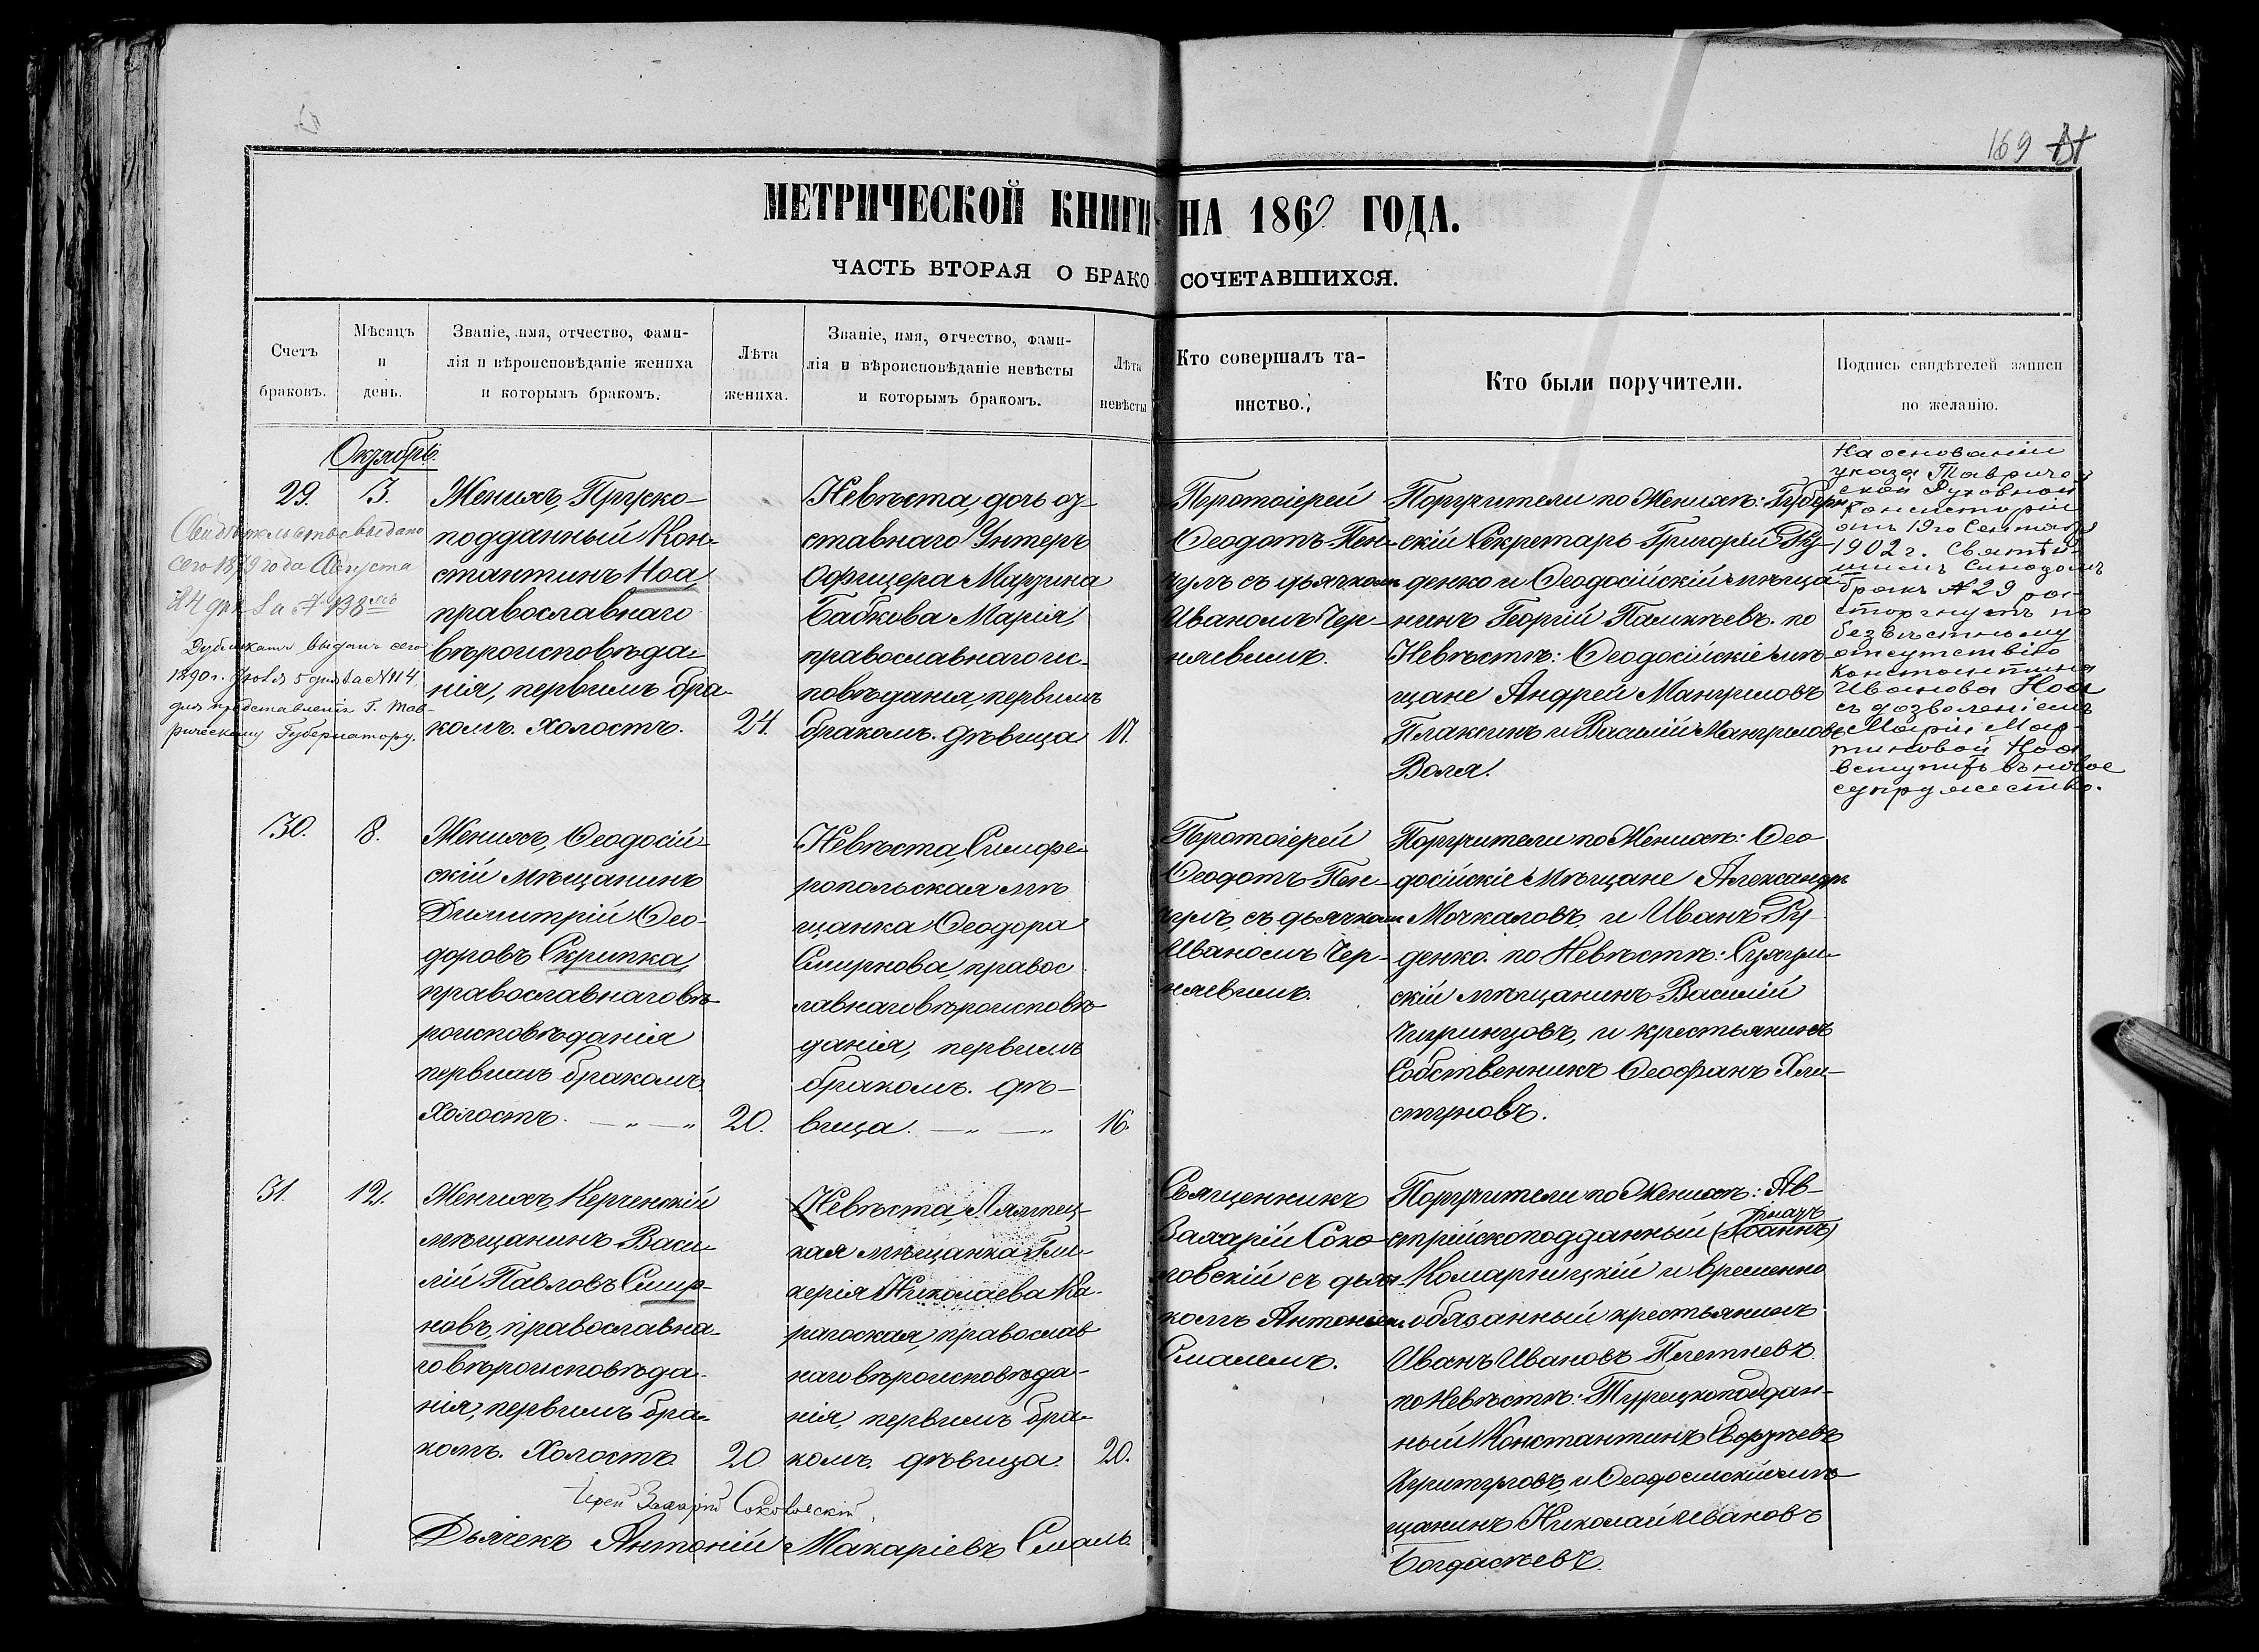 169
МЕТРИЧЕСКОЙ КНИГИ НА 1869 ГОДА.
ЧАСТЬ ВТОРАЯ О БРАКОСОЧЕТАВШИХСЯ.
Счетъ
браковъ.
Мѣсяцъ
и
день.
Званіе, имя, отчество, фами-
лія и вѣроисповѣданіе жениха
и которымъ бракомъ.
Лѣта
жениха.
Званіе, имя, отчество, фами-
лія и вѣроисповѣданіе невѣсты
и которымъ бракомъ.
Лѣта
невѣсты
Кто совершалъ та-
инство.
Кто были поручители.
Подпись свидѣтелей записи
по желанію.
Октябрь.
29.
3.
Свидѣтельство выдано
сего 1879 года Августа
24 дня за № 138
Дубликатъ выданъ сего
1890 г. Іюля 5 дня за № 114,
для представленія Г. Тав-
рическому Губернатору.
Женихъ, Пруско-
подданный Кон-
стантинъ Ноа,
православнаго
вѣроисповѣда-
нія, первымъ бра-
комъ. Холостъ.
24.
Невѣста, дочь от-
ставнаго Унтеръ
Офицера Мартина
Бабкова Марія,
православнаго ис-
повѣданія, первымъ
бракомъ. дѣвица
17.
Протоіерей
Ѳеодотъ Пен-
чулъ съ дьячкомъ
Иваномъ Чер-
нявимъ.
Поручители по Женихѣ: Губерн-
скій Секретарь Григорій Ру-
денко и Ѳеодосійскій мѣща-
нинъ Георгій Памкѣевъ. по
Невѣстѣ: Ѳеодосійскіе мѣ-
щане Андрей Мангуиловъ
Плаксинъ и Василій Мангуиловъ
Воля.
На основаніи
указа Тавриче-
ской Духовной
Консисторіи
отъ 19го Сентября
1902 г. Святѣй-
шимъ Синодомъ
бракъ № 29 рас-
торгнутъ по
безвѣстному
отсутствію
Константина
Иванова Ноа
съ дозволеніемъ
Маріи Мар-
тиновой Ноа
вступить въ новое
супружество.
30.
8.
Женихъ, Ѳеодосій-
скій мѣщанинъ
Димитрій Ѳео-
доровъ Скрипка,
православнаго вѣ-
роисповѣданія
первымъ бракомъ
Холостъ. — „ — „
20.
Невѣста, Симфе-
ропольская мѣ
щанка Ѳеодора
Смирнова, правос
лавнаго вѣроисповѣ-
данія, первымъ
бракомъ. дѣ-
вица. — „ — „
16.
Протоіерей
Ѳеодотъ Пен-
чулъ, съ дьячкомъ
Иваномъ Чер-
нявимъ.
Поручители по Женихѣ: Ѳео-
досійскіе Мѣщане Александръ
Мочкаловъ, и Иванъ Ру
денко. по Невѣстѣ:
скій мѣщанинъ Василій
Чиринцовъ, и крестьянинъ
Собственникъ Ѳеофанъ Хли-
стуновъ.
31.
12.
Женихъ, Керченскій
мѣщанинъ Васи-
лій Павловъ Смир-
новъ, православна-
го вѣроисповѣда-
нія, первымъ бра-
комъ. Холостъ.
20
Невѣста,
кая мѣщанка Гли-
керія Николаева Ка-
рагоская, православ
наго вѣроисповѣда-
нія, первымъ бра-
комъ. дѣвица.
20.
Священникъ
Захарій Соко-
ловскій съ дьяч-
комъ Антоніемъ
Смалемъ.
Поручители по Женихѣ: Ав-
стрійскоподданный
Комарницкій и временно
обязанный крестьянинъ
Иванъ Ивановъ Плетневъ.
по Невѣстѣ: Турецкоподдан-
ный Константинъ
и Ѳеодосійскій мѣ
щанинъ Николай Ивановъ
Богдасѣевъ.
Іерей Захарій Соколовскій,
Дьячекъ Антоній Макаріевъ Смаль.